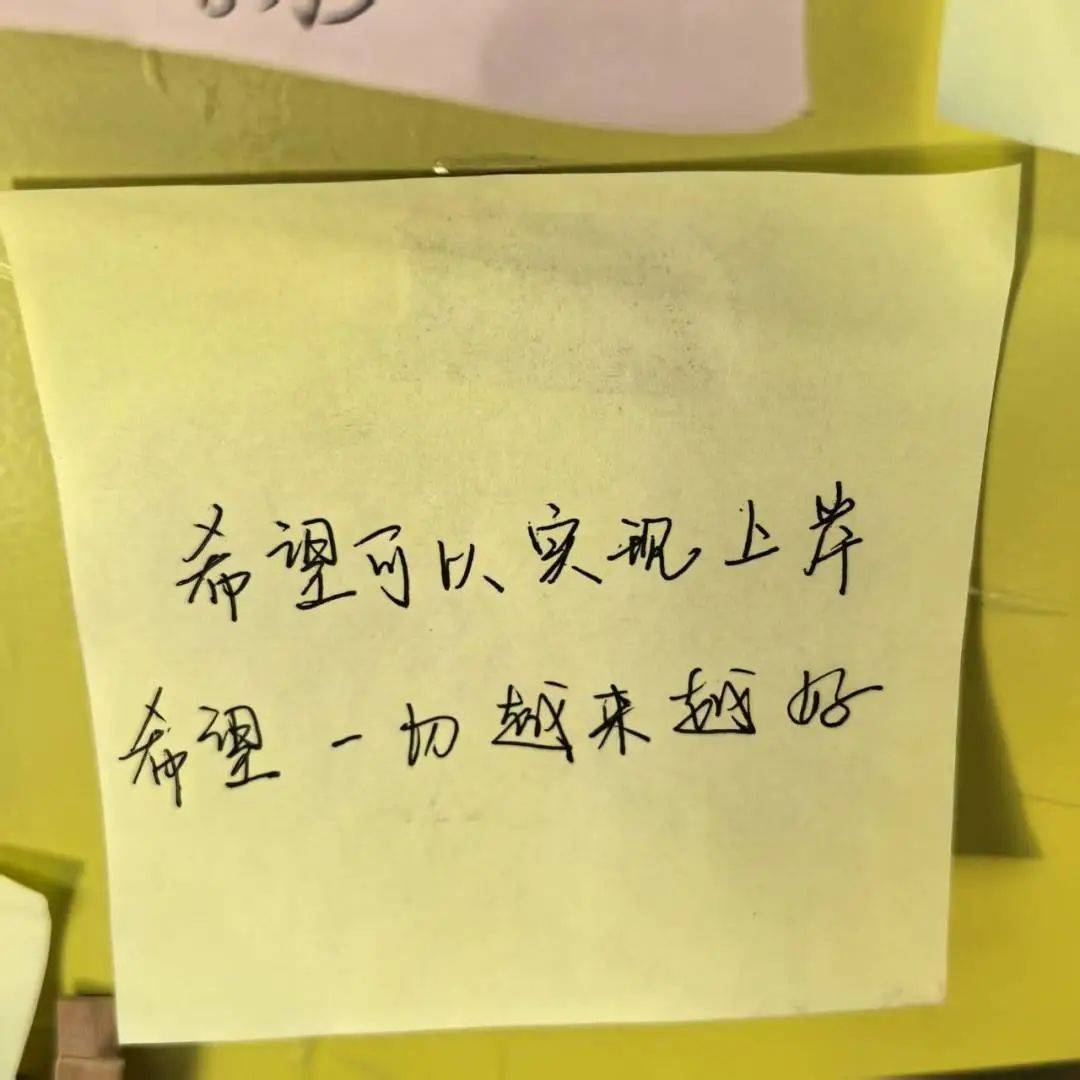 希望可以实现上岸
希望一切越来越好